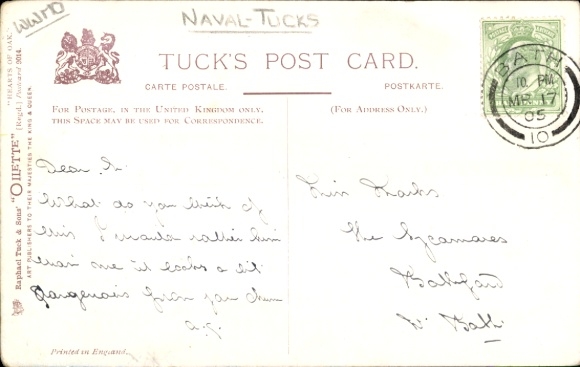 WWMD
NAVAL-TUCKS
TUCK'S POST CARD.
CARTE POSTALE.
POSTKARTE.
FOR POSTAGE, IN THE UNITED KINGDOM ONLY,
THIS SPACE MAY BE USED FOR CORRESPONDENCE.
(FOR ADDRESS ONLY.)
BATH
10 PM
17
05
10
"HEARTS OF OAK."
(Regd.) Postcard 9014.
Raphael Tuck & Sons' "OILETTE"
ART PUBLISHERS TO THEIR MAJESTIES THE KING & QUEEN.
Dear
What do you think of
this I rather him
than me it looks a bit
dangerous from
Miss Marks
The Sycamores
Bathford
Nr Bath
Printed in England.